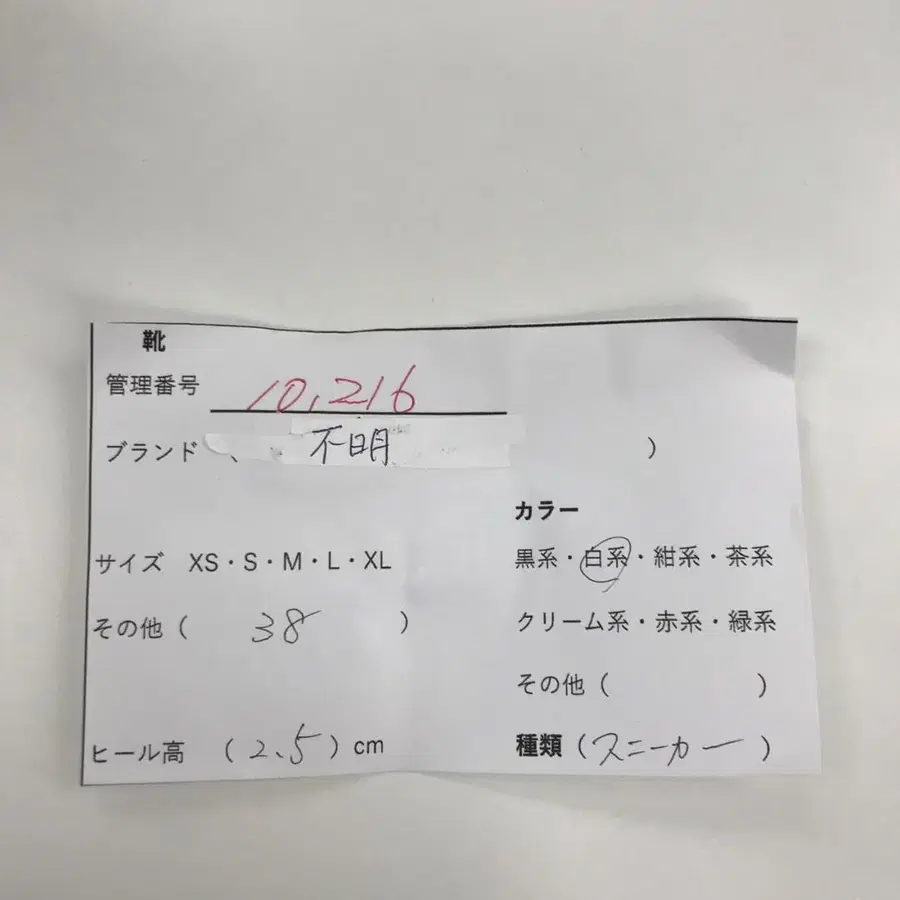 靴
管理番号 10,216
ブランド 不明 )
カラー
サイズ XS・S・M・L・XL
黒系・白系・紺系・茶系
その他 ( 38 )
クリーム系・赤系・緑系
その他 ( )
ヒール高 (2.5) cm
種類 (スニーカー)